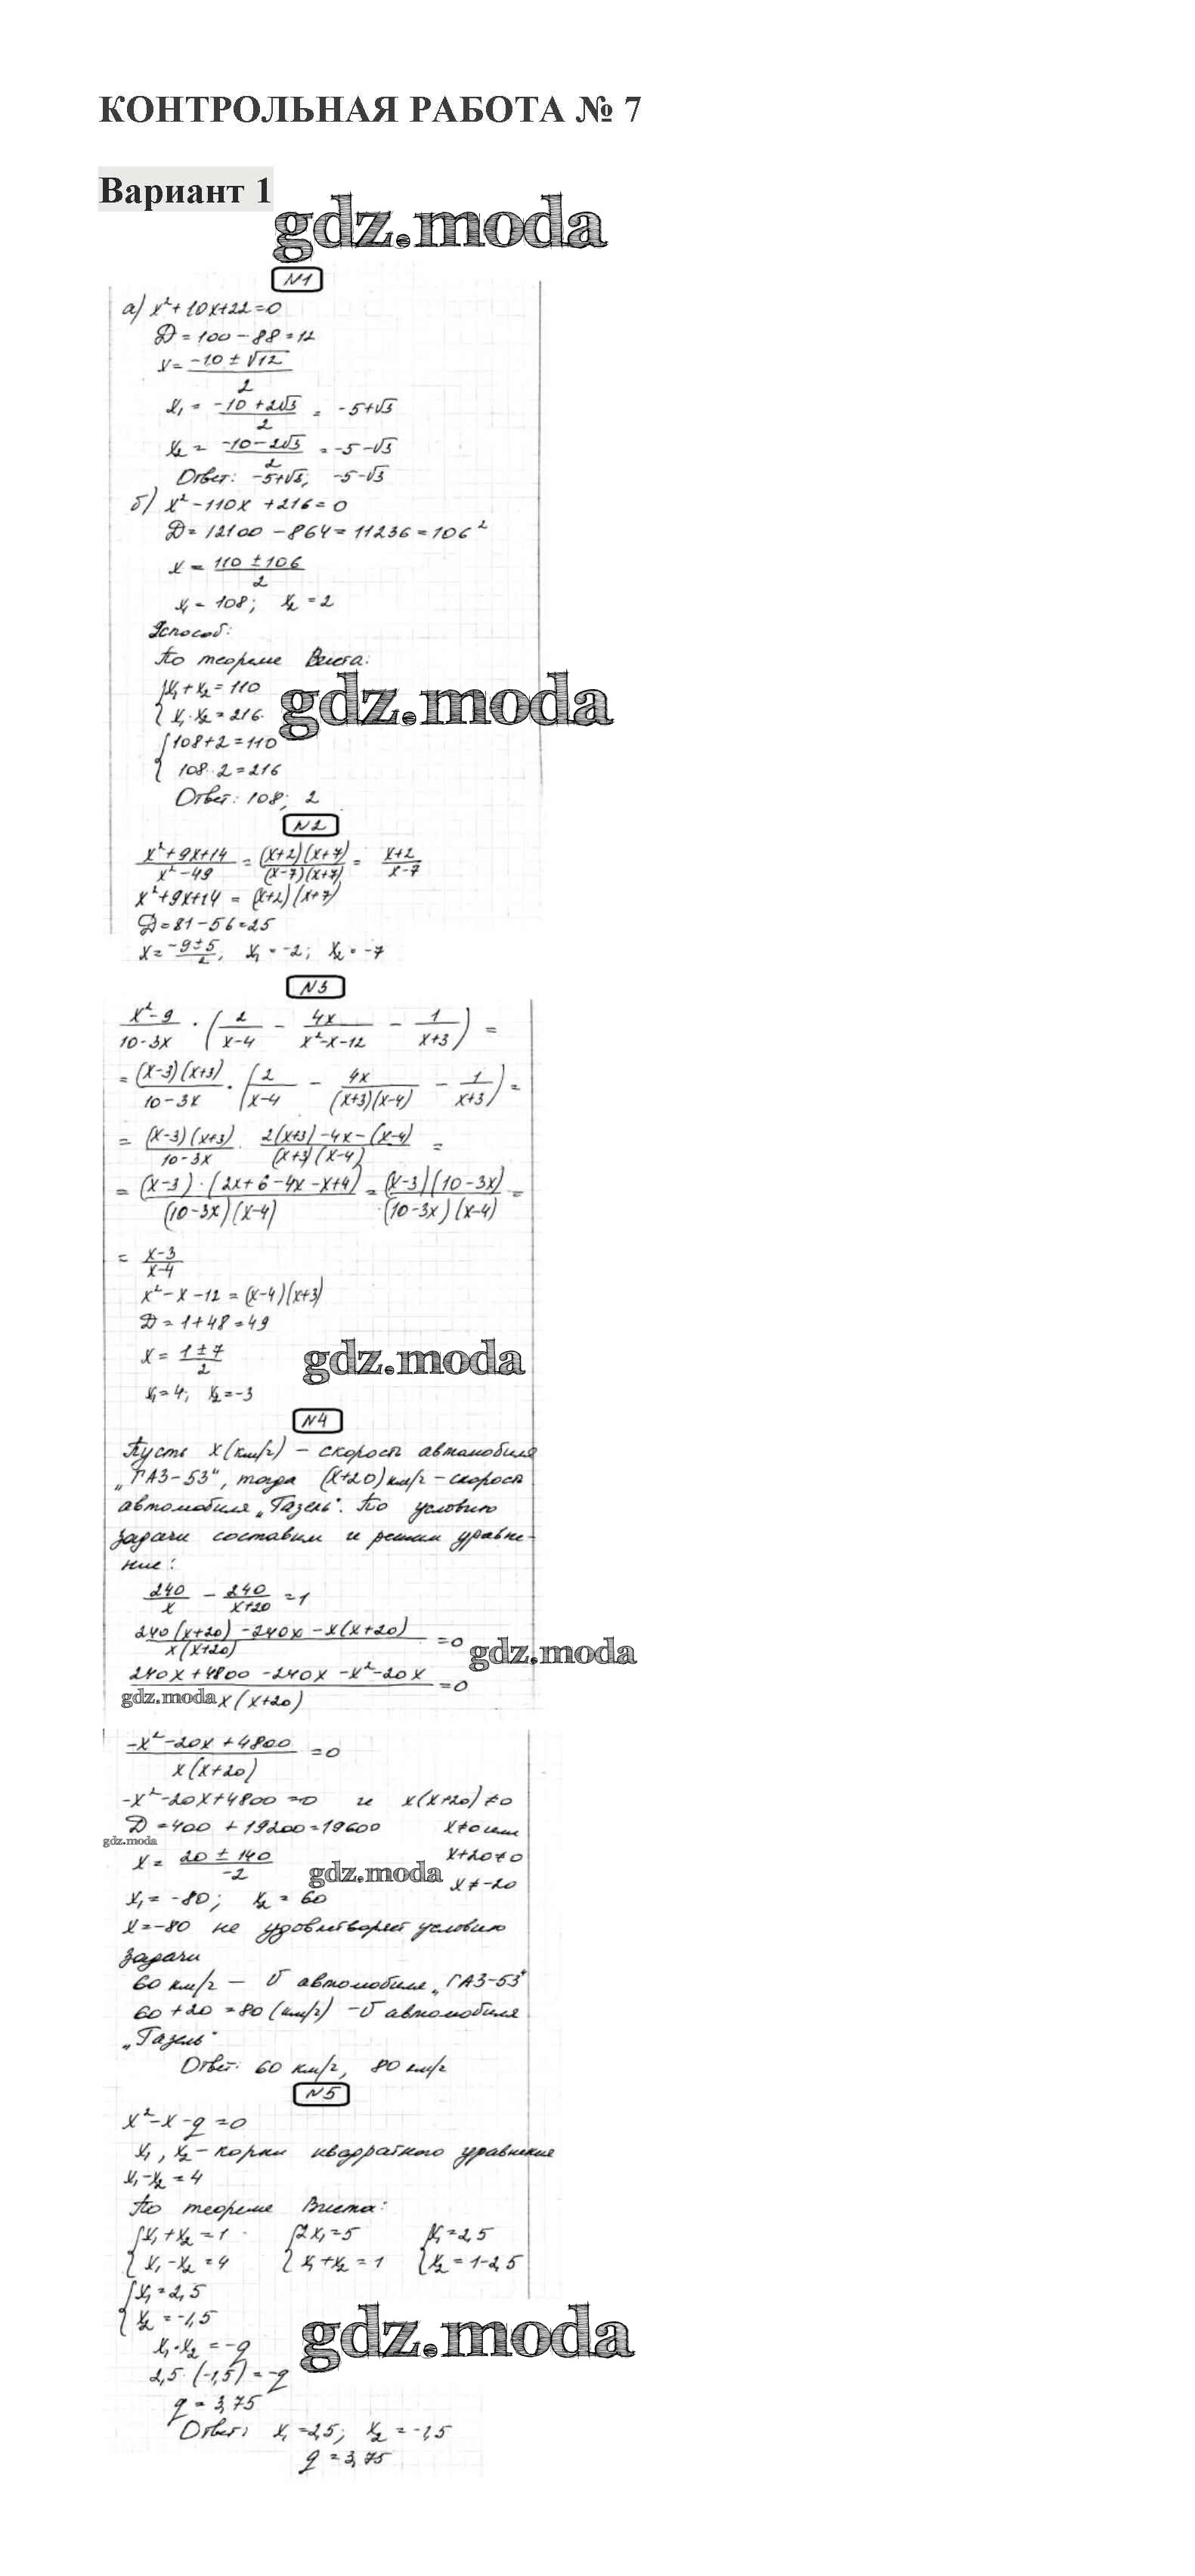 КОНТРОЛЬНАЯ РАБОТА № 7
Вариант 1
gdz.moda
N1
а) x²+10x+22=0
D=100-88=12
x=(-10±√12)/2
x₁=(-10+2√3)/2=-5+√3
x₂=(-10-2√3)/2=-5-√3
Ответ: -5+√3; -5-√3
б) x²-110x+216=0
D=12100-864=11236=106²
x=(110±106)/2
x₁=108; x₂=2
2способ:
По теореме Виета:
{x₁+x₂=110
{x₁·x₂=216
gdz.moda
{108+2=110
{108·2=216
Ответ: 108; 2
N2
(x²+9x+14)/(x²-49)=((x+2)(x+7))/((x-7)(x+7))=(x+2)/(x-7)
x²+9x+14=(x+2)(x+7)
D=81-56=25
x=(-9±5)/2, x₁=-2; x₂=-7
N3
(x²-9)/(10-3x)·(2/(x-4)-4x/(x²-x-12)-1/(x+3))=
=((x-3)(x+3))/(10-3x)·(2/(x-4)-4x/((x+3)(x-4))-1/(x+3))=
=((x-3)(x+3))/(10-3x)·(2(x+3)-4x-(x-4))/((x+3)(x-4))=
=((x-3)·(2x+6-4x-x+4))/((10-3x)(x-4))=((x-3)(10-3x))/((10-3x)(x-4))=
=(x-3)/(x-4)
x²-x-12=(x-4)(x+3)
D=1+48=49
x=(1±7)/2
gdz.moda
x₁=4; x₂=-3
N4
Пусть x(км/ч) - скорость автомобиля
„ГАЗ-53“, тогда (x+20)км/ч - скорость
автомобиля „Газель“. По условию
задачи составим и решим уравне-
ние:
240/x-240/(x+20)=1
(240(x+20)-240x-x(x+20))/(x(x+20))=0
gdz.moda
(240x+4800-240x-x²-20x)/(x(x+20))=0
gdz.moda
(-x²-20x+4800)/(x(x+20))=0
-x²-20x+4800=0 и x(x+20)≠0
D=400+19200=19600 x≠0 или
gdz.moda
x=(20±140)/-2 x+20≠0
gdz.moda
x≠-20
x₁=-80; x₂=60
x=-80 не удовлетворяет условию
задачи
60 км/ч - v автомобиля „ГАЗ-53“
60+20=80(км/ч) - v автомобиля
„Газель“
Ответ: 60 км/ч, 80 км/ч
N5
x²-x-q=0
x₁, x₂ - корни квадратного уравнение
x₁-x₂=4
По теореме Виета:
{x₁+x₂=1 {2x₁=5 {x₁=2,5
{x₁-x₂=4 {x₁+x₂=1 {x₂=1-2,5
{x₁=2,5
{x₂=-1,5
gdz.moda
x₁·x₂=-q
2,5·(-1,5)=-q
q=3,75
Ответ: x₁=2,5; x₂=-1,5
q=3,75